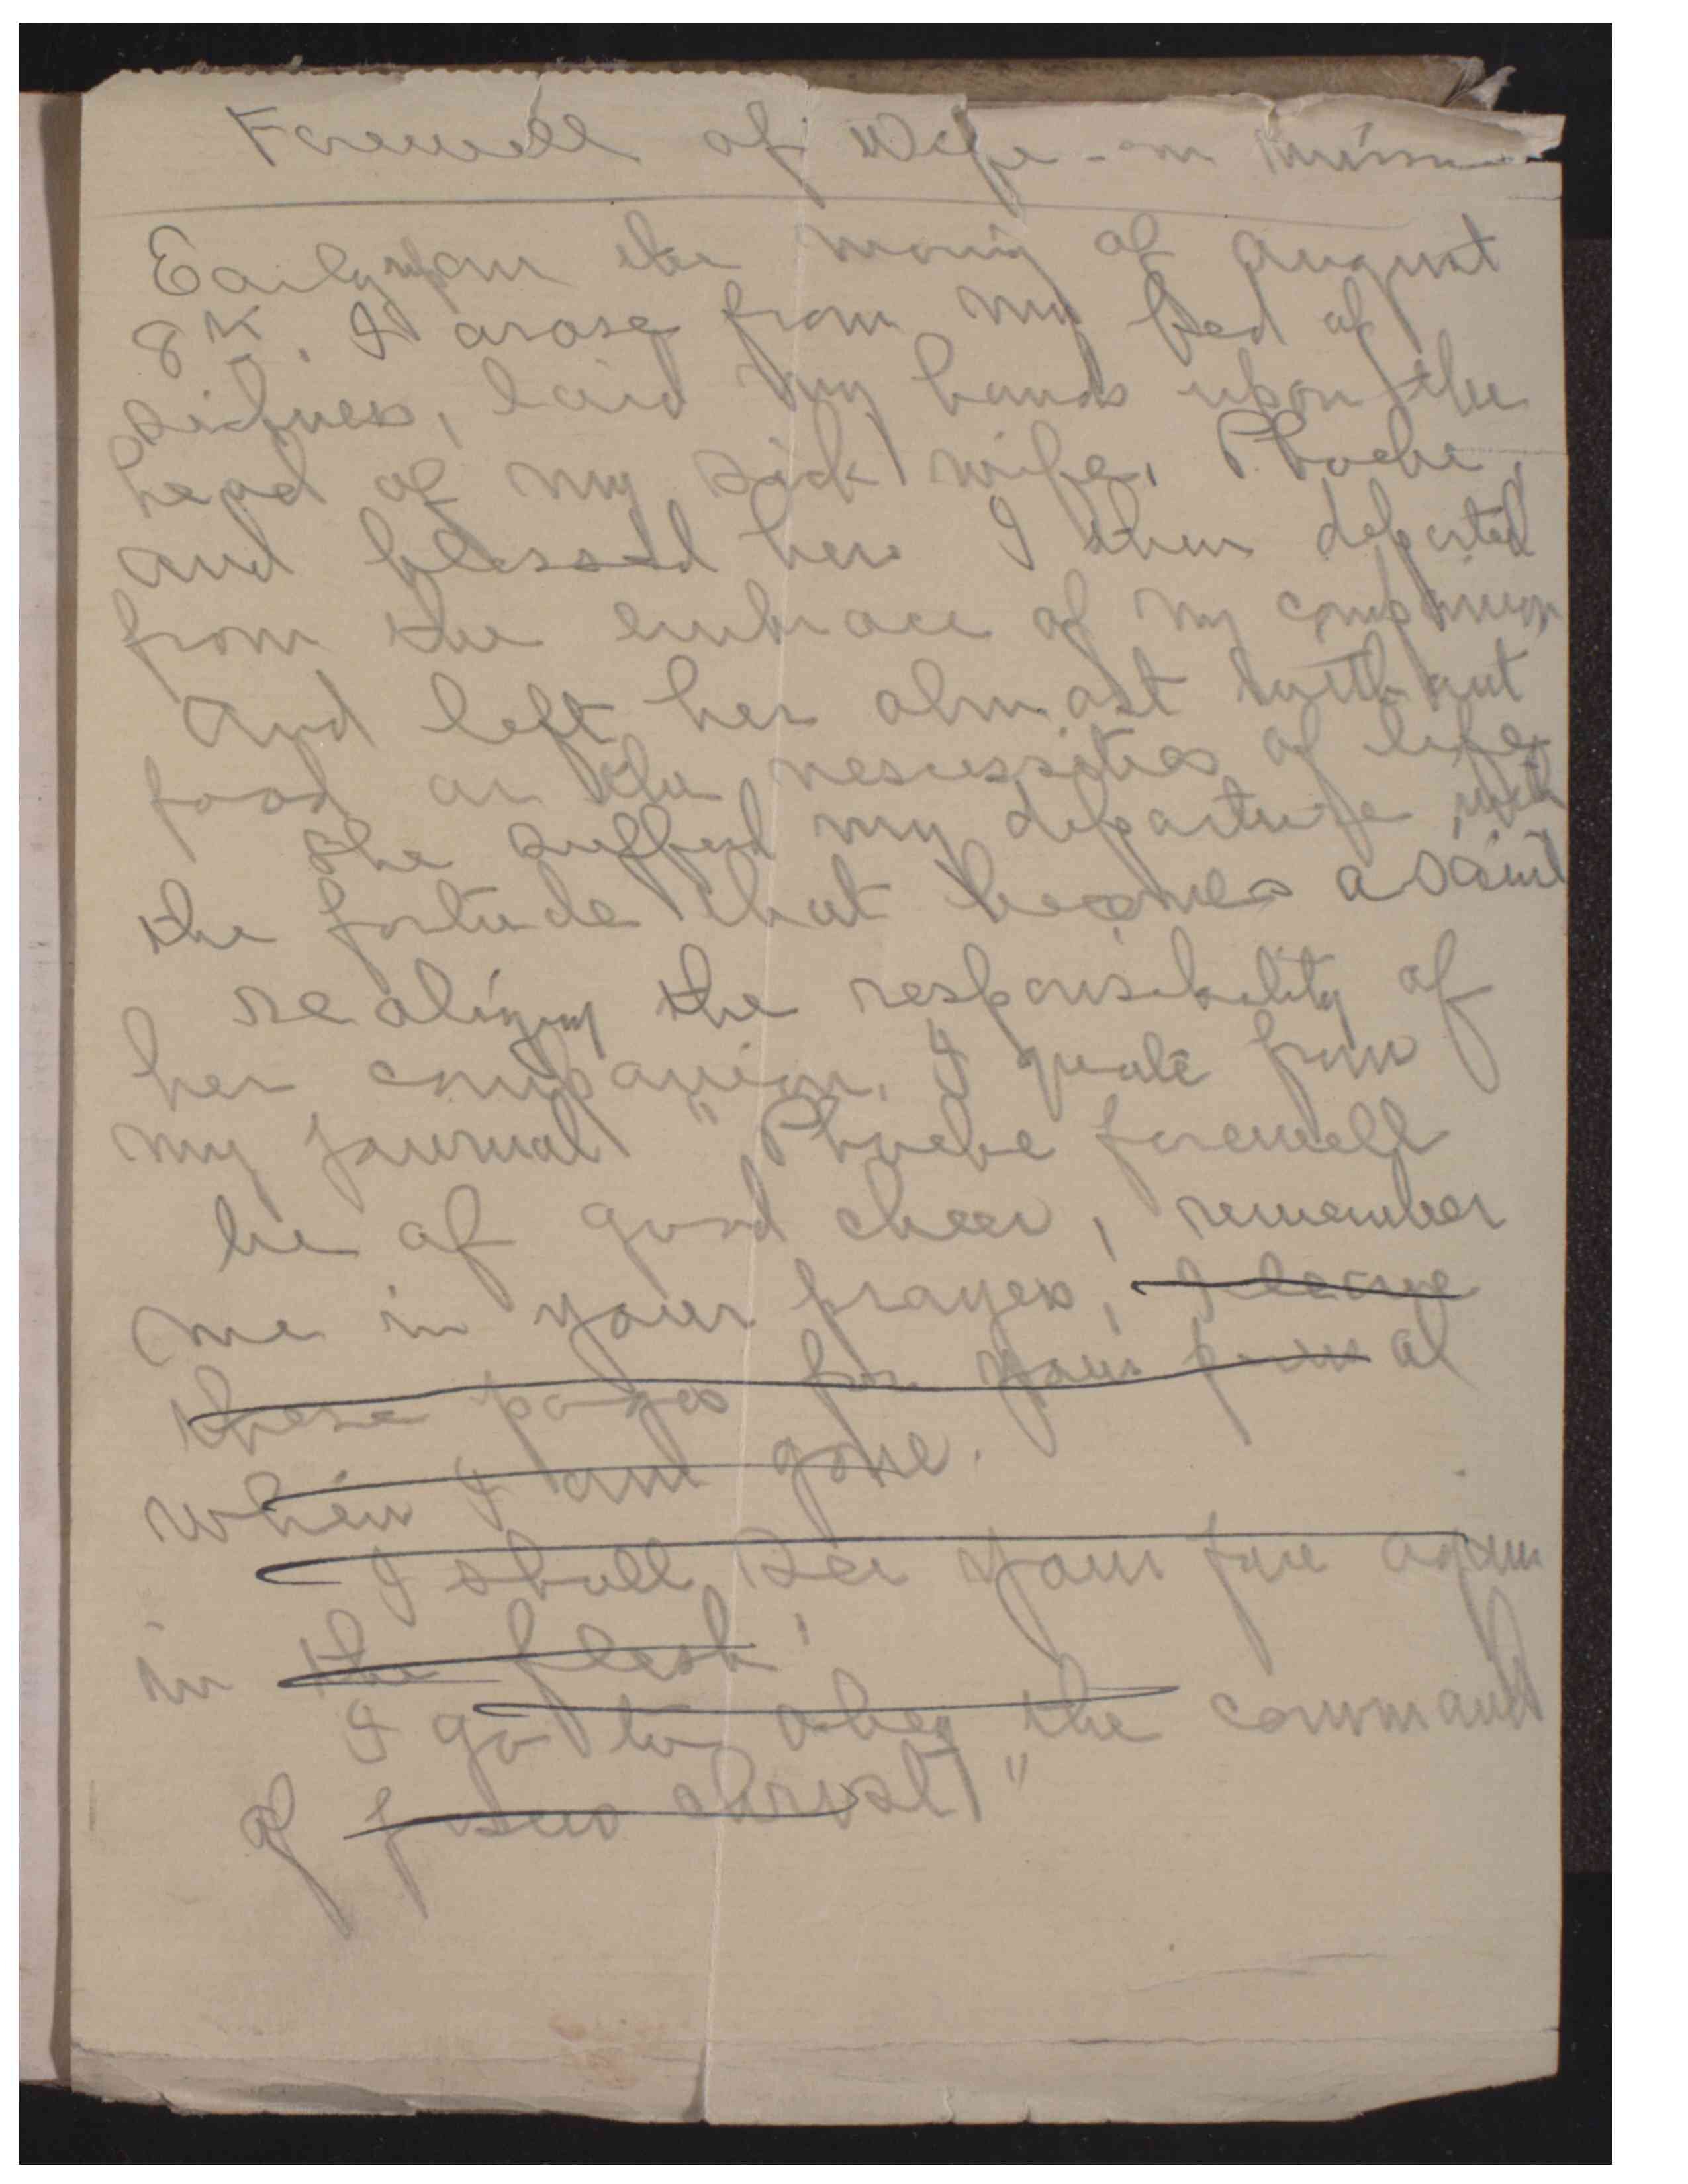 Farewell of Wife - on mission
Early upon the morning of August
8th. I arose from my bed of
sickness, laid my hands upon the
head of my sick wife, Phoebe,
and blessed her. I then departed
from the embrace of my companion
and left her almost without
food or the nescessities of life
She suffered my departure with
the fortude that becomes a saint
realizing the responsibility of
her companion. I quote from
my journal "Phoebe farewell
be of good cheer, remember
me in your prayers, I leave
these pages for your perusal
when I am gone.
I shall see your face again
in the flesh.
I go to obey the command
of Jesus Christ"